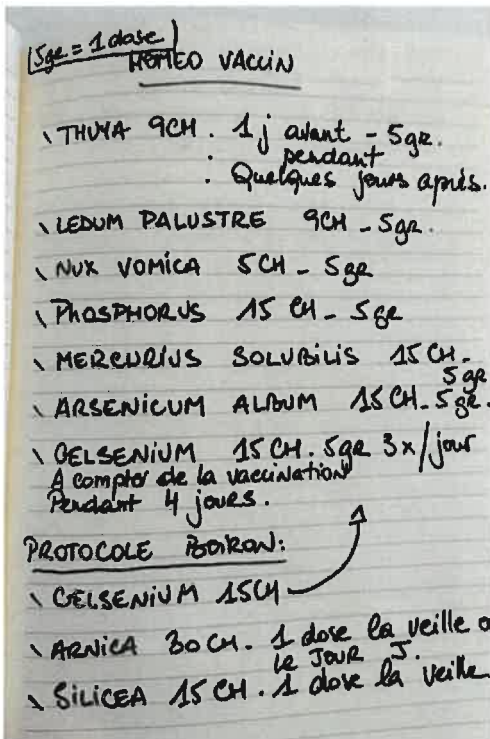 5gr = 1 dose
HOMEO VACCIN
\ THUYA 9CH. 1j avant - 5gr.
pendant
: Quelques jours après.
\ LEDUM PALUSTRE 9CH - 5gr.
\ NUX VOMICA 5CH - 5gr
\ PHOSPHORUS 15 CH - 5gr
\ MERCURIUS SOLUBILIS 15 CH -
5gr
\ ARSENICUM ALBUM 15 CH - 5gr.
\ GELSENIUM 15CH. 5gr 3x/jour
A compter de la vaccination
Pendant 4 jours.
PROTOCOLE BOIRON:
\ GELSENIUM 15CH
\ ARNICA 30CH. 1 dose la veille o
le JOUR J.
\ SILICEA 15 CH. 1 dose la veille